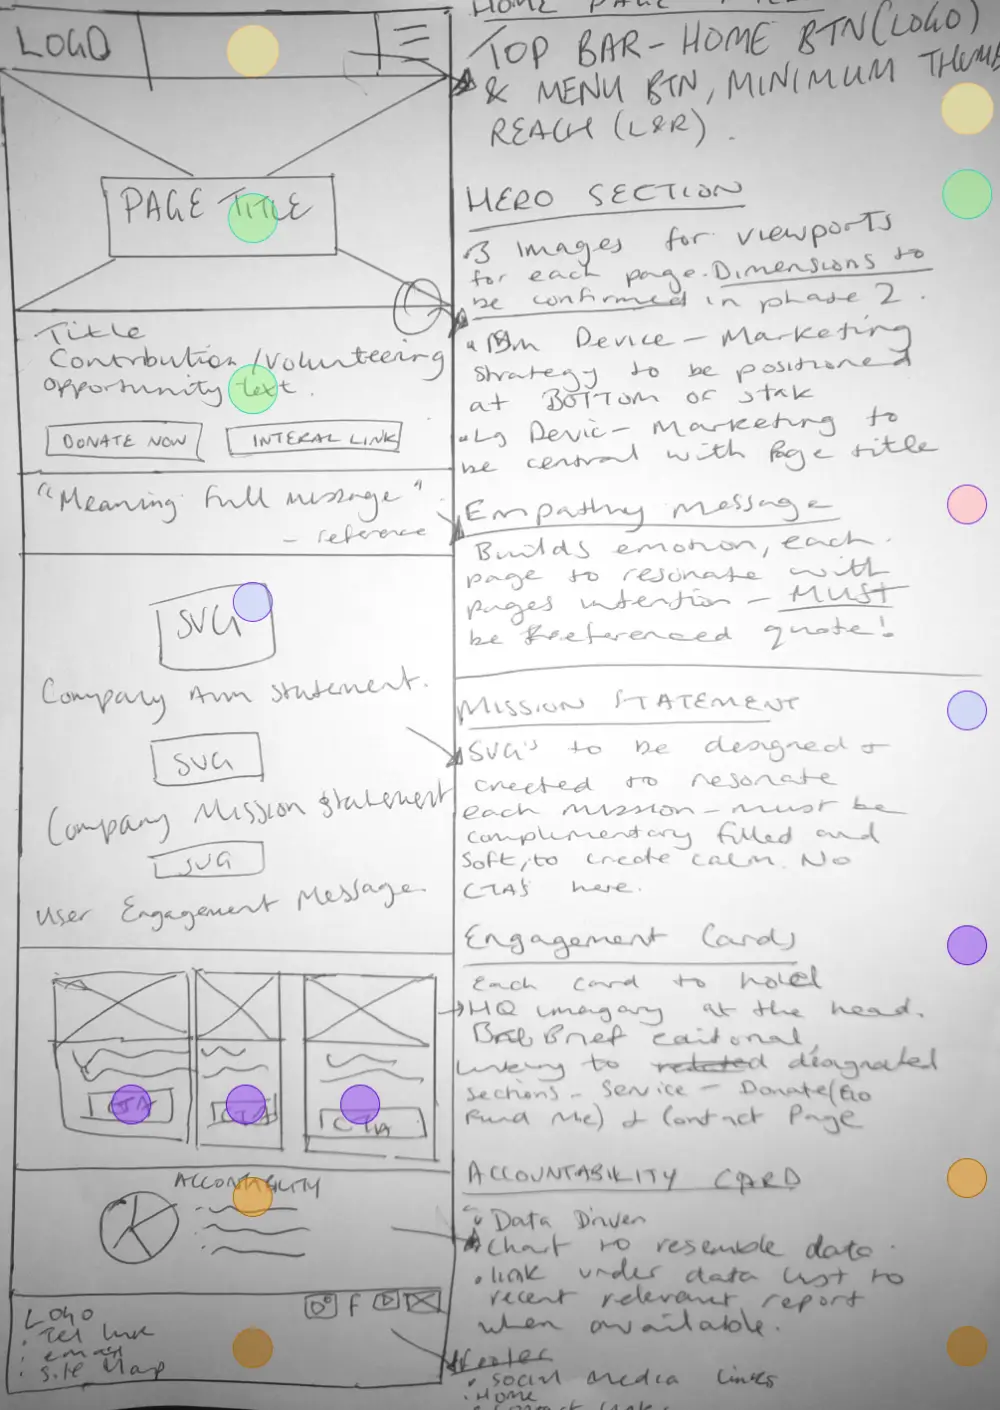 LOGO
PAGE TITLE
Title
Contribution/Volunteering
opportunity text.
DONATE NOW
INTERAL LINK
"Meaning full message"
- reference
SVG
Company Aim statement.
SVG
Company Mission statement
SVG
User Engagement Message.
CTA
CTA
CTA
ACCONTABILITY
LOGO
. Tel link
. email
. Site Map
f
HOME PAGE
TOP BAR - HOME BTN(LOGO)
& MENU BTN, MINIMUM THUMB
REACH (L&R).
HERO SECTION
.3 Images for viewports
for each page. Dimensions to
be confirmed in phase 2.
. Sm Device - Marketing
strategy to be positioned
at BOTTOM of stak
. Lg Devic - Marketing to
be central with Page title
Empathy message
Builds emotion, each
page to resonate with
pages intention - MUST
be Referenced quote!
MISSION STATEMENT
SVG's to be designed &
created to resonate
each mission - must be
complimentary filled and
soft, to create calm. No
CTAS here.
Engagement Cards
Each card to hold
HQ imagary at the head.
Brief
linking to designated
sections - Service - Donate(Go
Fund Me) & Contact Page
ACCOUNTABILITY CARD
. Data Driven
. Chart to resemble data.
. link under data list to
recent relevant report
when available.
Footer
. Social Media Links
. Home